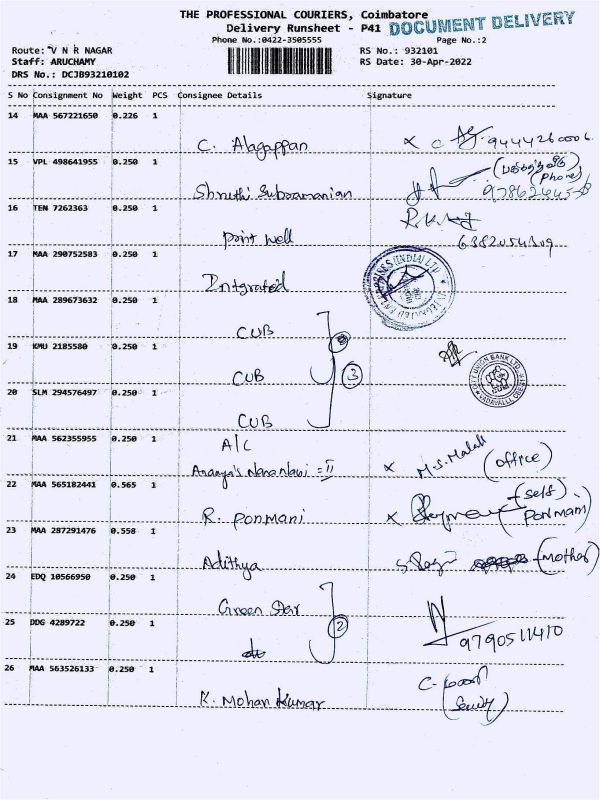 THE PROFESSIONAL COURIERS, Coimbatore
Delivery Runsheet - P41
DOCUMENT DELIVERY
Phone No.:0422-3505555
Page No.:2
Route: V N R NAGAR
RS No.: 932101
Staff: ARUCHAMY
RS Date: 30-Apr-2022
DRS No.: DCJB93210102
S No Consignment No Weight PCS Consignee Details Signature
14 MAA 567221650 0.226 1
C. Alagappan
15 VPL 498641955 0.250 1
(Phone)
Shruthi Subramanian
16 TEN 7262363 0.250 1
Point Well
6382054309
17 MAA 290752583 0.250 1
Intgrated
18 MAA 289673632 0.250 1
CUB
19 KMU 2185580 0.250 1
CUB 3
CITY UNION BANK LTD.
20 SLM 294576497 0.250 1
CUB
21 MAA 562355955 0.250 1
A/C
Ananya's Nana Nani = II x M.S. (office)
22 MAA 565182441 0.565 1
(self)
R. Ponmani x Ponmani
23 MAA 287291476 0.558 1
Adithya (mother)
24 EDQ 10566950 0.250 1
Green Star
25 DDG 4289722 0.250 1
2
9790511410
26 MAA 563526133 0.250 1
K. Mohan Kumar